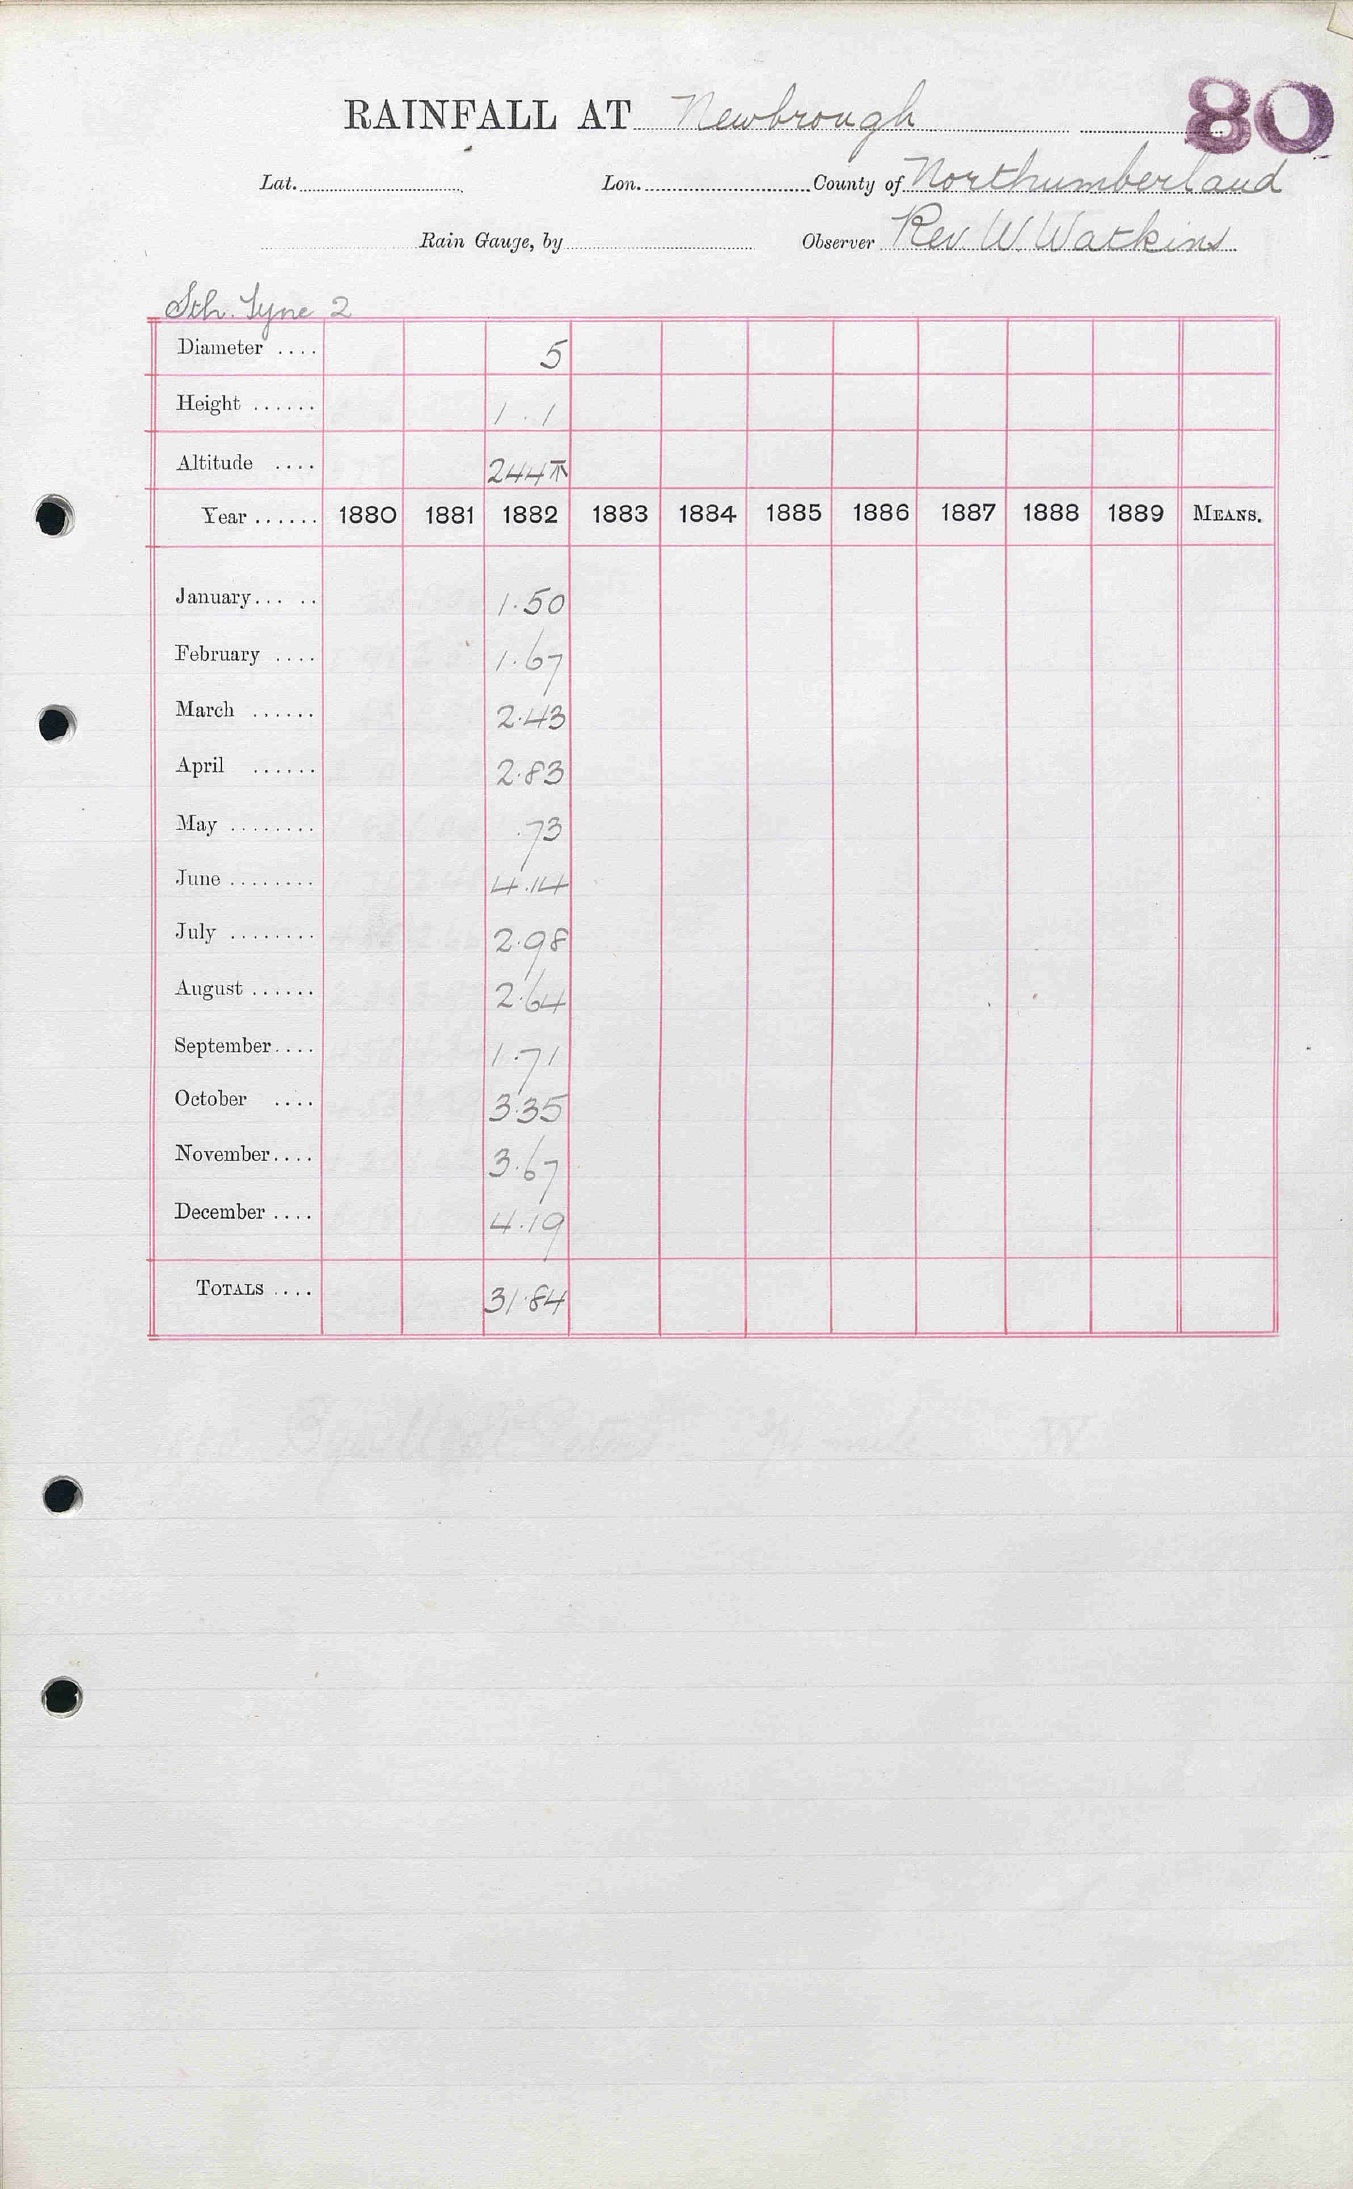 80
RAINFALL AT Newbrough
Lat. Lon. County of Northumberland
Rain Gauge, by Observer Rev W. Watkins
Sth. Tyne 2
Diameter .... 5
Height ...... 1 . 1
Altitude .... 244
Year ...... 1880 1881 1882 1883 1884 1885 1886 1887 1888 1889 MEANS.
January... .. 1.50
February .... 1.67
March ...... 2.43
April ...... 2.83
May ........ .73
June ........ 4.14
July ........ 2.98
August ...... 2.64
September.... 1.71
October .... 3.35
November.... 3.67
December .... 4.19
TOTALS .... 31.84